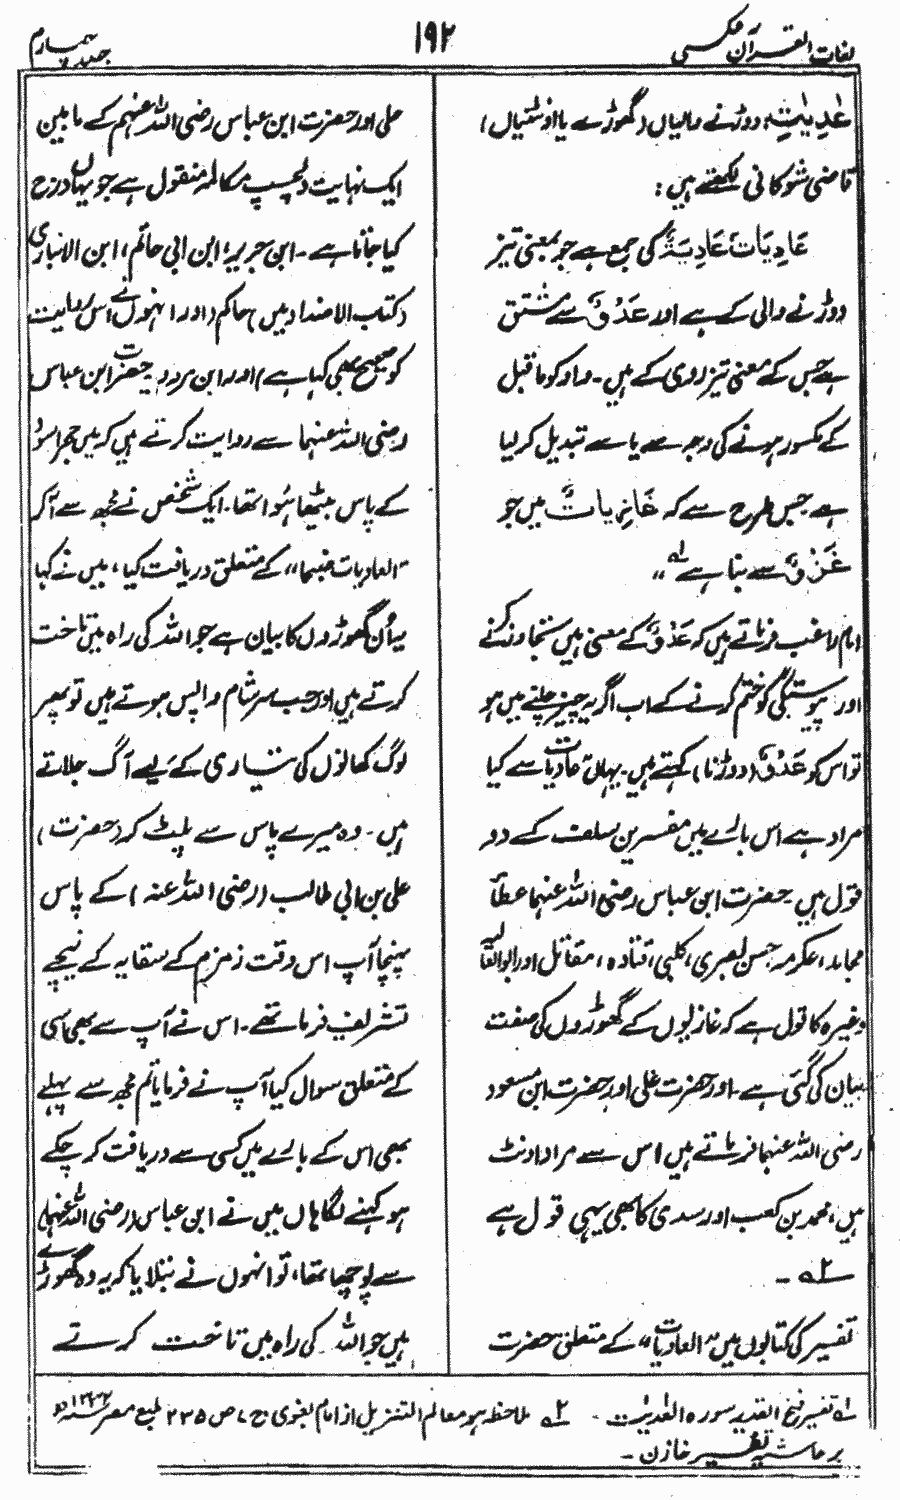 لغات القرآن عکسی
۱۹۲
جلد چہارم
عٰدِیٰتٍ، دوڑنے والیاں (گھوڑے یا اونٹنیاں)
قاضی شوکانی لکھتے ہیں:
عَادِیَات عَادِیَۃٌ کی جمع ہے جو بمعنی تیز
دوڑنے والی کے ہے اور عَدْوٌ سے مشتق
ہے جس کے معنی تیز روی کے ہیں۔ واو کو ماقبل
کے مکسور ہونے کی وجہ سے یا سے تبدیل کر لیا
ہے جس طرح سے کہ غَازِیَاتٌ میں جو
غَزْوٌ سے بنا ہے لہ "
امام راغب فرماتے ہیں کہ عَدْوٌ کے معنی ہیں تجاوز کرنے
اور پیوستگی کو ختم کرنے کے اب اگر یہ چیز چلنے میں ہو
تو اس کو عَدْوٌ (دوڑنا) کہتے ہیں۔ یہاں عادیات سے کیا
مراد ہے اس بارے میں مفسرین سلف کے دو
قول ہیں۔ حضرت ابن عباس رضی اللہ عنہما عطاؔ
مجاہد، عکرمہ حسن بصری، کلبی، قتادہ، مقاتل اور ابوالعالیہ
وغیرہ کا قول ہے کہ غازیوں کے گھوڑوں کی صفت
بیان کی گئی ہے۔ اور حضرت علی اور حضرت ابن مسعود
رضی اللہ عنہما فرماتے ہیں اس سے مراد اونٹ
ہیں، محمد بن کعب اور سدی کا بھی یہی قول ہے
۲ہ۔
تفسیر کی کتابوں میں "العادیات" کے متعلق حضرت
علی اور حضرت ابن عباس رضی اللہ عنہم کے مابین
ایک نہایت دلچسپ مکالمہ منقول ہے جو یہاں درج
کیا جاتا ہے۔ ابن جریر، ابن ابی حاتم، ابن الانباری
(کتاب الاضداد میں) حاکم (اور انہوں نے اس روایت
کو صحیح بھی کہا ہے) اور ابن مردویہ حضرت ابن عباس
رضی اللہ عنہما سے روایت کرتے ہیں کہ میں حجر اسود
کے پاس بیٹھا ہوا تھا۔ ایک شخص نے مجھ سے آکر
"العادیات ضبحا" کے متعلق دریافت کیا، میں نے کہا
یہ اُن گھوڑوں کا بیان ہے جو اللہ کی راہ میں تاخت
کرتے ہیں اور جب سرشام واپس ہوتے ہیں تو پھر
لوگ کھانوں کی تیاری کے لیے آگ جلاتے
ہیں۔ وہ میرے پاس سے پلٹ کر (حضرت)
علی بن ابی طالب (رضی اللہ عنہ) کے پاس
پہنچا آپ اس وقت زمزم کے سقایہ کے نیچے
تشریف فرما تھے۔ اس نے آپ سے بھی اسی
کے متعلق سوال کیا آپ نے فرمایا تم مجھ سے پہلے
بھی اس کے بارے میں کسی سے دریافت کر چکے
ہو کہنے لگا ہاں میں نے ابن عباس (رضی اللہ عنہما)
سے پوچھا تھا، تو انہوں نے بتلایا کہ یہ وہ گھوڑے
ہیں جو اللہ کی راہ میں تاخت کرتے
لہ تفسیر فتح القدیر سورہ العٰدیٰت ۔ ۲ہ ملاحظہ ہو معالم التنزیل از امام بغوی ج ۷ ص ۲۳۵ طبع مصر
بر حاشیہ تفسیر خازن ۔